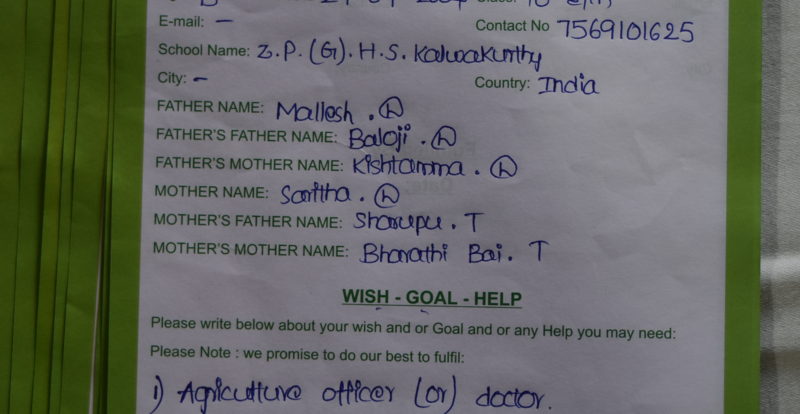 E-mail: -
Contact No 7569101625
School Name: Z.P.(G).H.S. Kalwakurthy
City: -
Country: India
FATHER NAME: Mallesh . (L)
FATHER'S FATHER NAME: Baloji . (L)
FATHER'S MOTHER NAME: Kishtamma . (L)
MOTHER NAME: Saritha . (L)
MOTHER'S FATHER NAME: Sharupu . T
MOTHER'S MOTHER NAME: Bharathi Bai. T
WISH - GOAL - HELP
Please write below about your wish and or Goal and or any Help you may need:
Please Note : we promise to do our best to fulfil:
1) Agriculture officer (or) doctor.